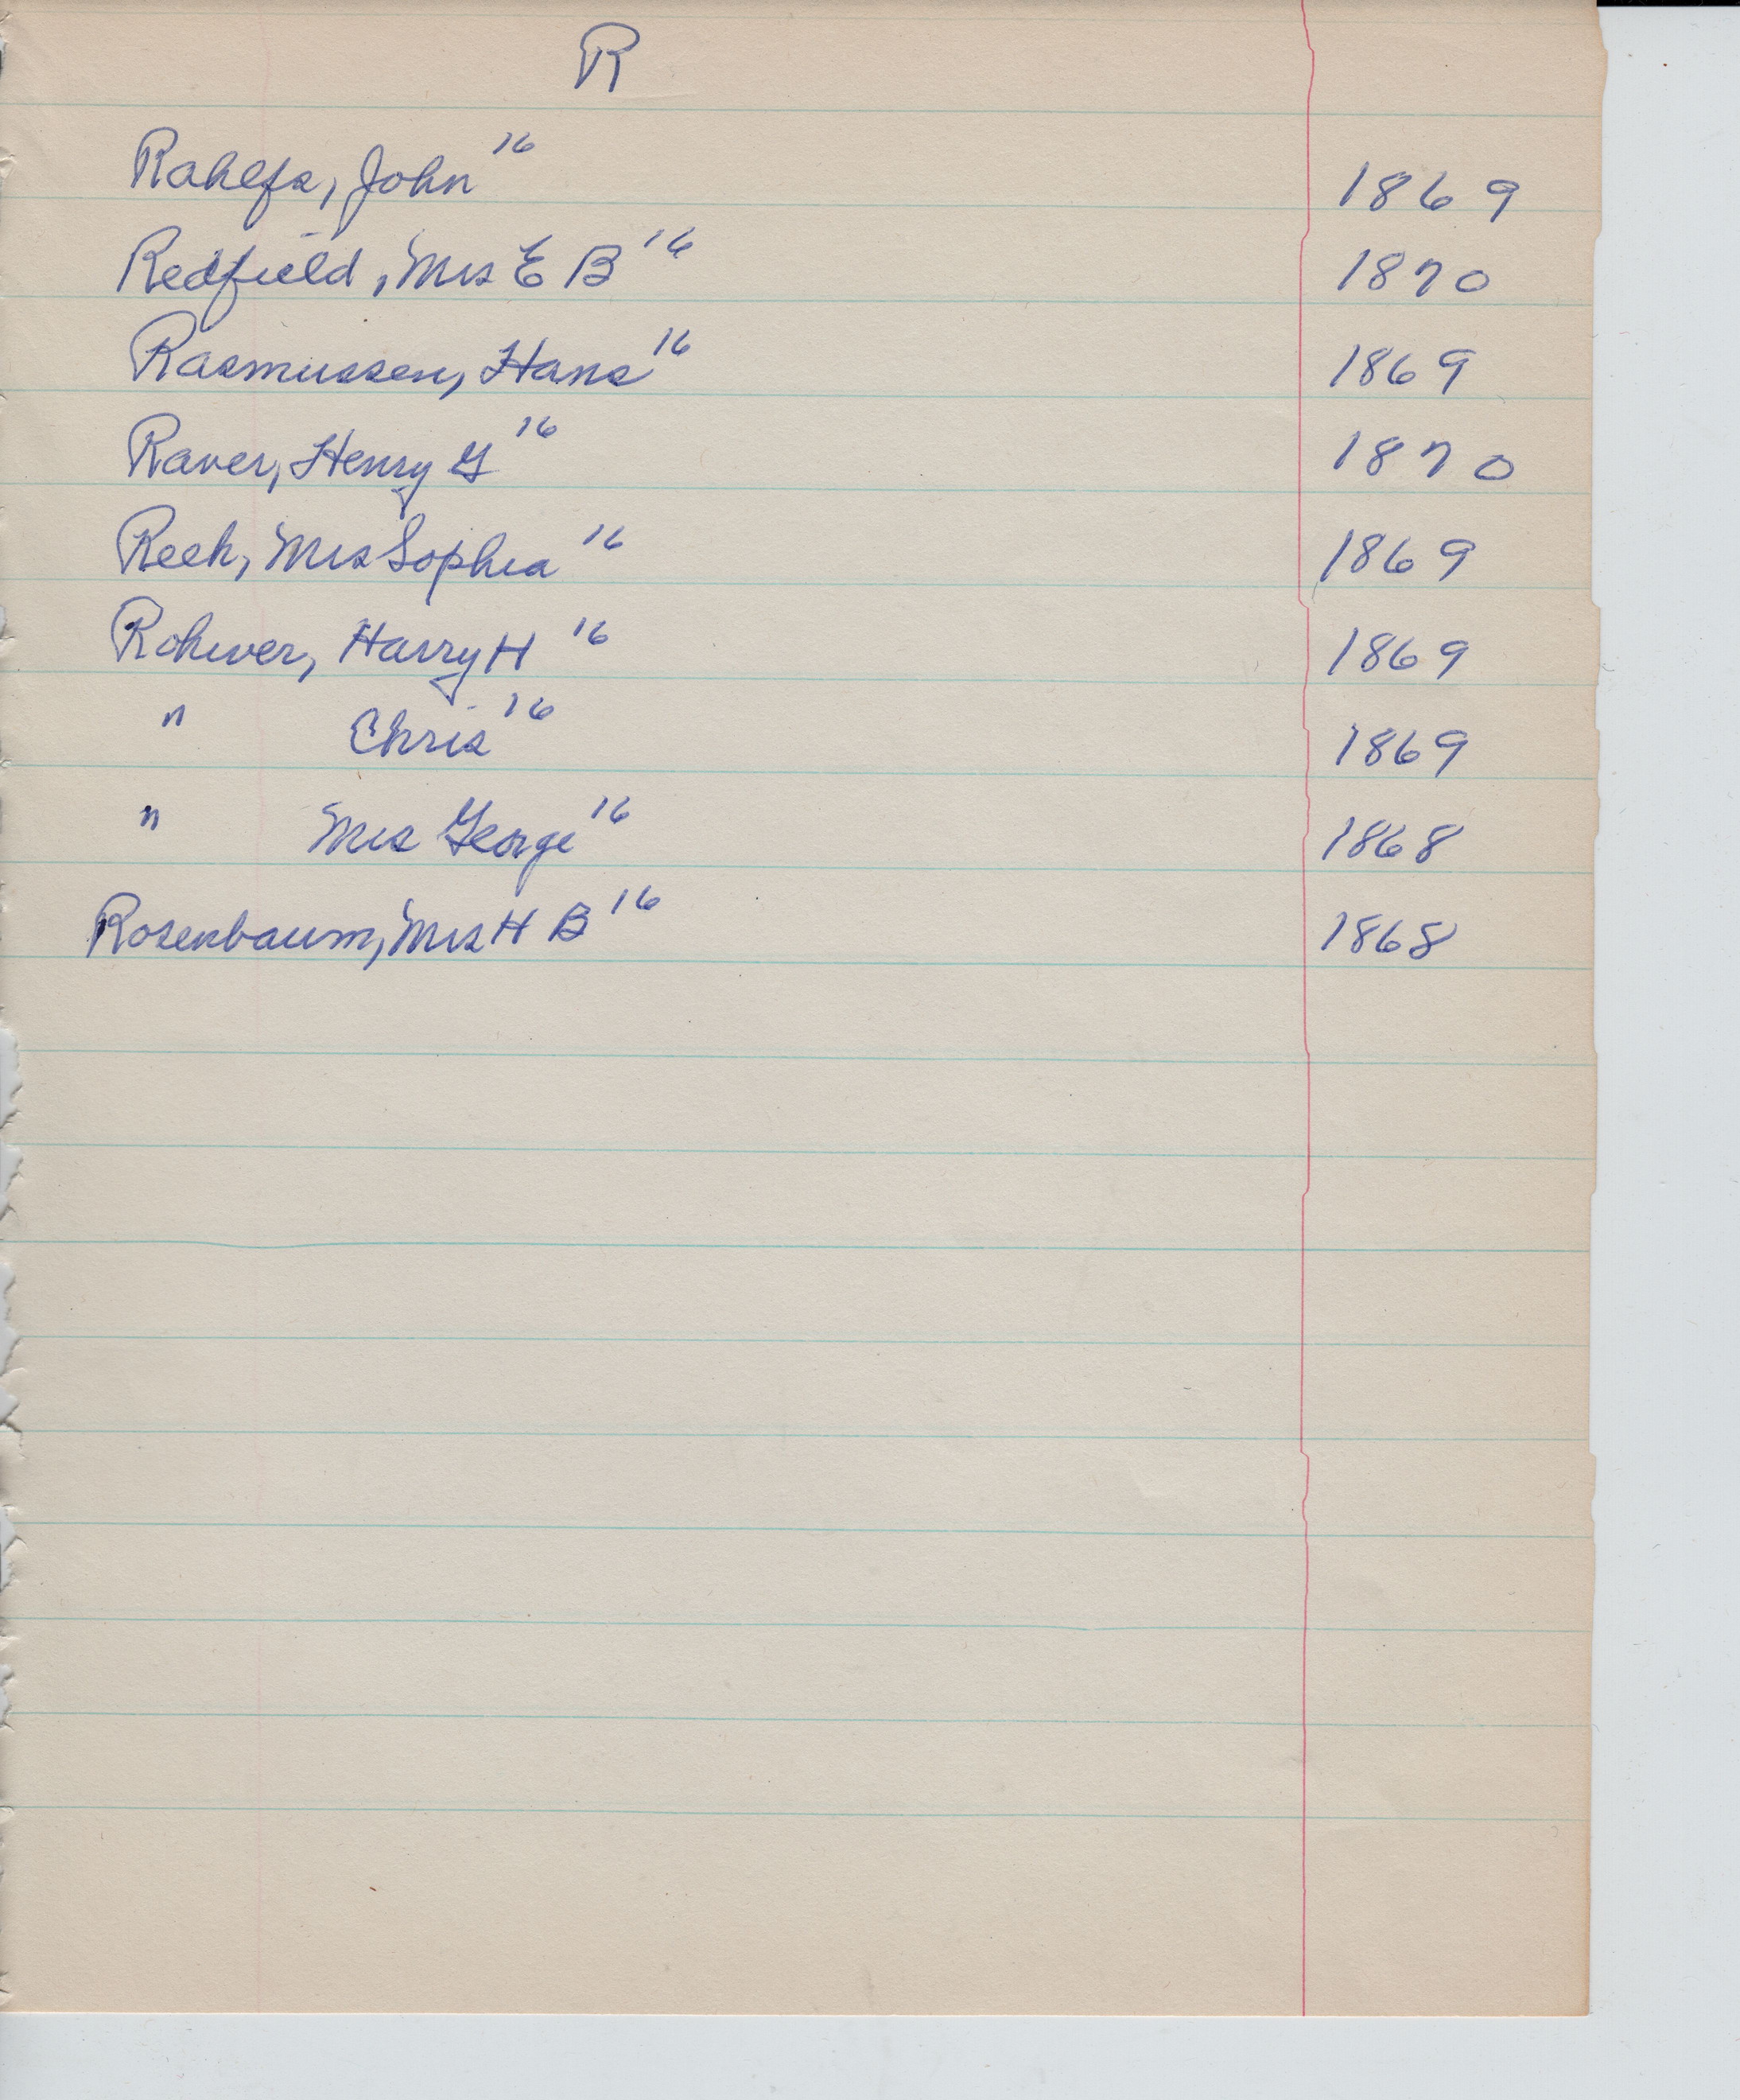 R
Rahlfs, John 16 1869
Redfield, Mrs E B 16 1870
Rasmussen, Hans 16 1869
Raver, Henry G 16 1870
Reeh, Mrs Sophia 16 1869
Rohwer, Harry H 16 1869
" Chris 16 1869
" Mrs George 16 1868
Rosenbaum, Mrs H B 16 1868